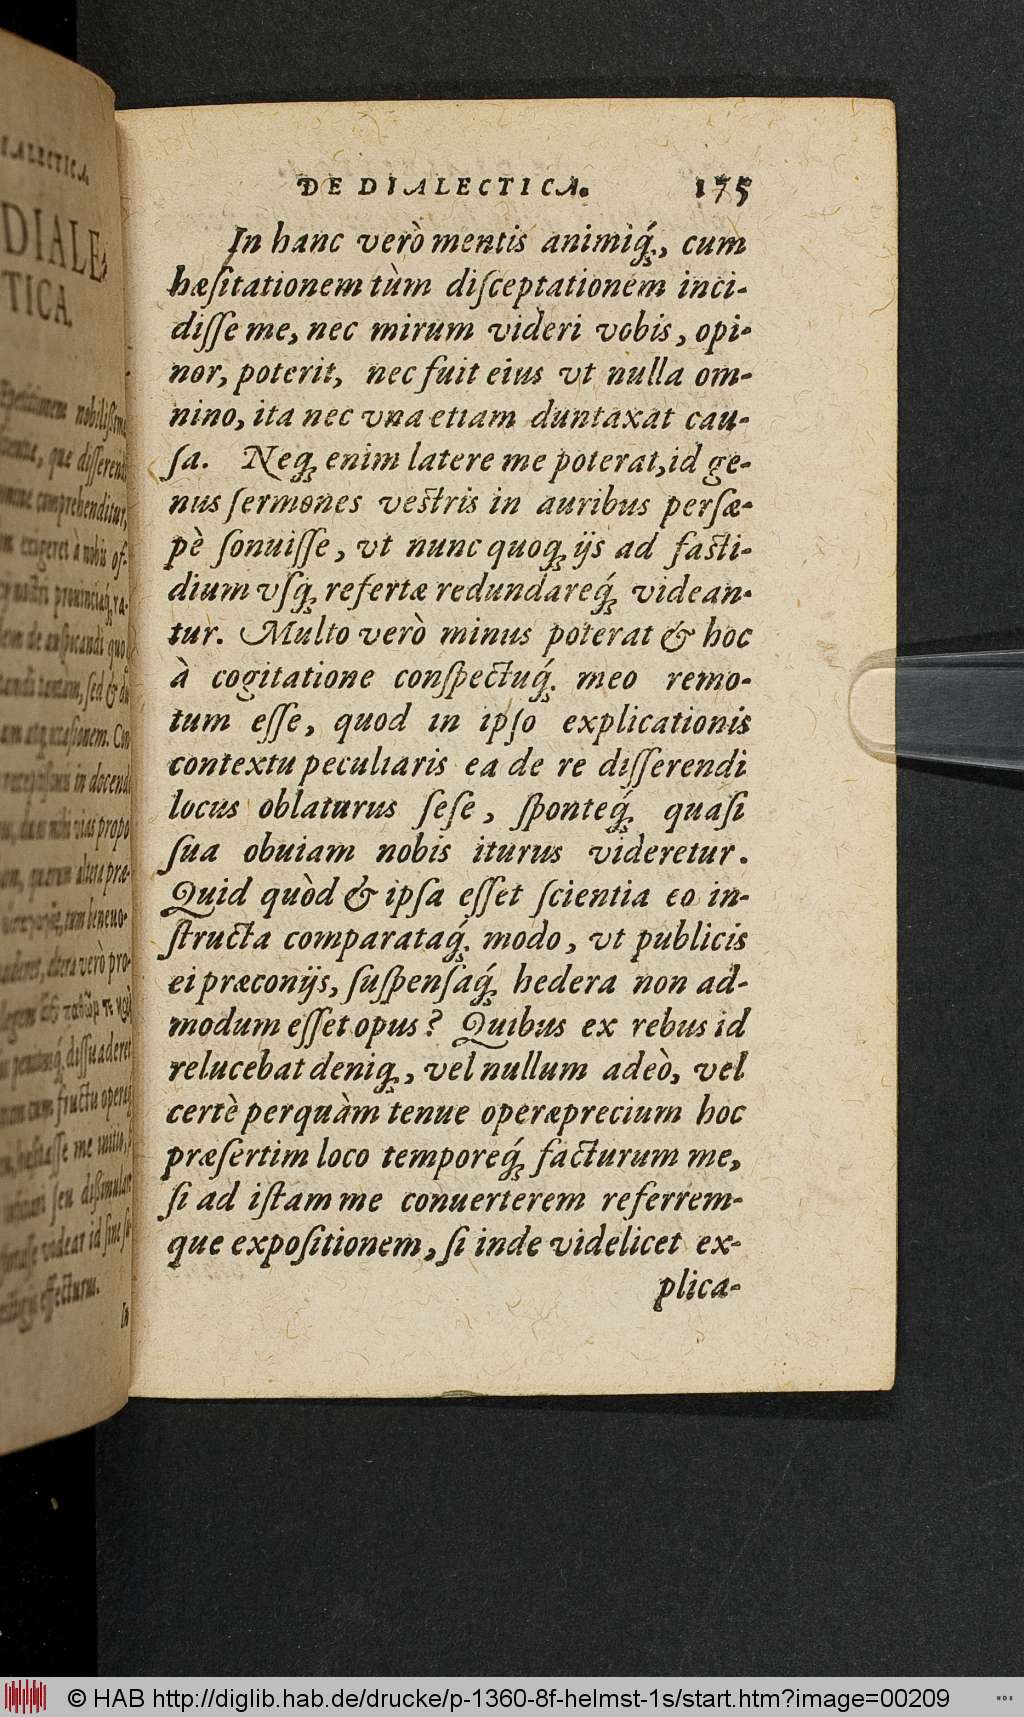 DE DIALECTICA. 175
In hanc verò mentis animiq́;, cum
hæſitationem tùm diſceptationem inci-
diſſe me, nec mirum videri vobis, opi-
nor, poterit, nec fuit eius vt nulla om-
nino, ita nec vna etiam duntaxat cau-
ſa. Neq; enim latere me poterat, id ge-
nus ſermones veſtris in auribus perſæ-
pè ſonuiſſe, vt nunc quoq; ijs ad faſti-
dium vſq; refertæ redundareq́; videan-
tur. Multo verò minus poterat & hoc
à cogitatione conſpectuq́; meo remo-
tum eſſe, quod in ipſo explicationis
contextu peculiaris ea de re diſſerendi
locus oblaturus ſeſe, ſponteq́; quaſi
ſua obuiam nobis iturus videretur.
Quid quòd & ipſa eſſet ſcientia eo in-
ſtructa comparataq́; modo, vt publicis
ei præconijs, ſuſpenſaq́; hedera non ad-
modum eſſet opus? Quibus ex rebus id
relucebat deniq;, vel nullum adeò, vel
certè perquàm tenue operæprecium hoc
præſertim loco temporeq́; facturum me,
ſi ad iſtam me conuerterem referrem-
que expoſitionem, ſi inde videlicet ex-
plica-
DIALE-
TICA.
nobiliſſimæ
que diſſerendi
comprehenditur,
exigeret à nobis of-
quo
ſed & du
in docend
vias propo
altera præ-
tum beneuo-
altera verò pro-
diſſuaderet
cum fructu
me initio,
ſeu diſſimulare
videar id ſine
effecturus.
In
© HAB http://diglib.hab.de/drucke/p-1360-8f-helmst-1s/start.htm?image=00209